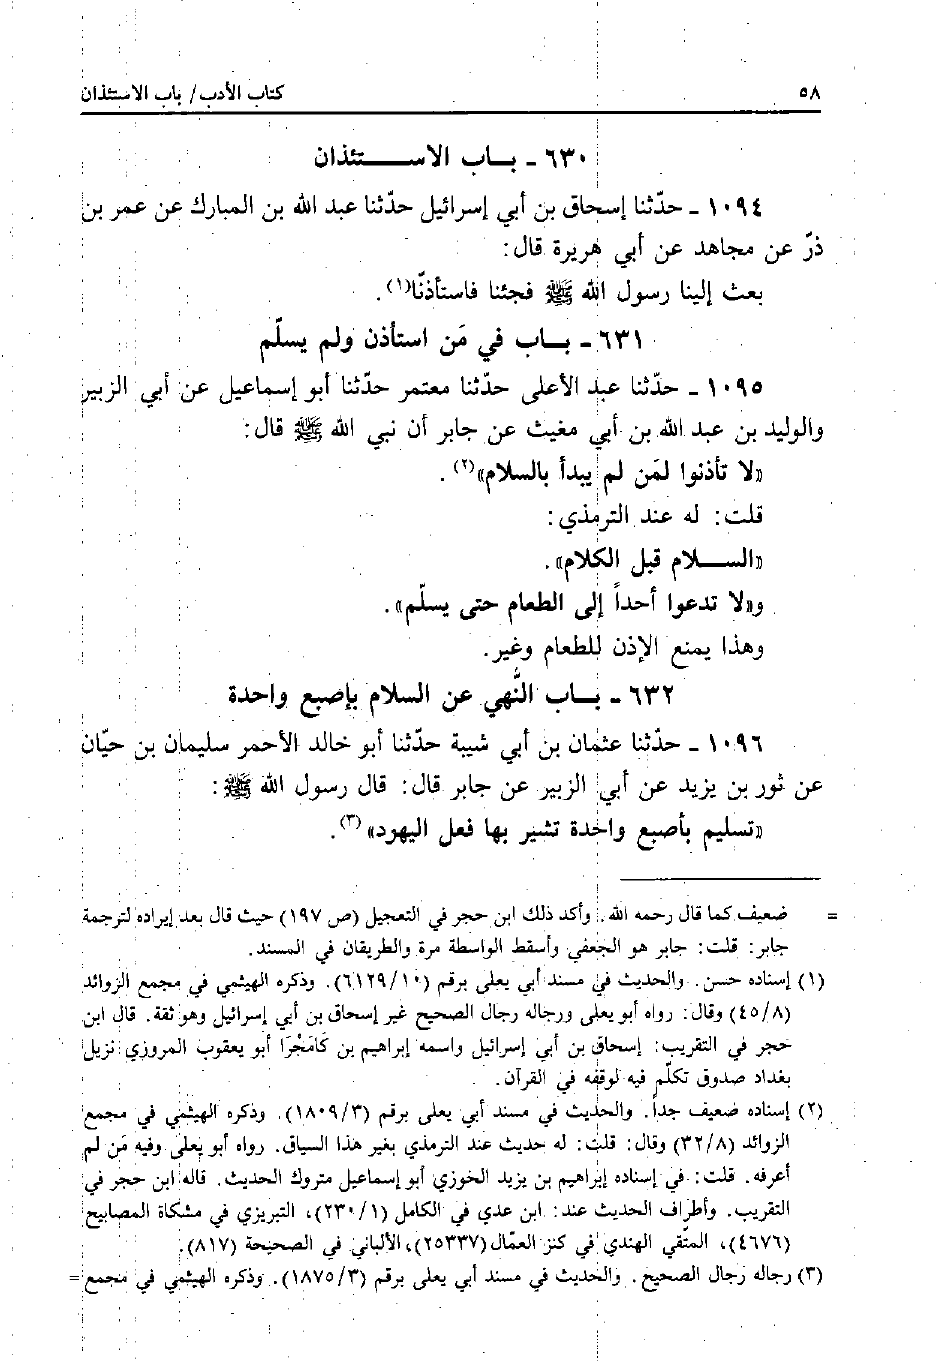 ٥٨
كتاب الأدب / باب الاستئذان
٦٣٠ - بـاب الاستئذان
١٠٩٤ - حدّثنا إسحاق بن أبي إسرائيل حدّثنا عبد الله بن المبارك عن عمر بن
ذرّ عن مجاهد عن أبي هريرة قال:
بعث إلينا رسول الله ﷺ فجئنا فاستأذنّا(١).
٦٣١ - بـاب في مَن استأذن ولم يسلّم
١٠٩٥ - حدّثنا عبد الأعلى حدّثنا معتمر حدّثنا أبو إسماعيل عن أبي الزبير
والوليد بن عبد الله بن أبي مغيث عن جابر أن نبي الله ﷺ قال:
«لا تأذنوا لمَن لم يبدأ بالسلام»(٢).
قلت: له عند الترمذي:
«السـلام قبل الكلام».
و«لا تدعوا أحداً إلى الطعام حتى يسلّم».
وهذا يمنع الإذن للطعام وغير.
٦٣٢ - بـاب النُّهي عن السلام بإصبع واحدة
١٠٩٦ - حدّثنا عثمان بن أبي شيبة حدّثنا أبو خالد الأحمر سليمان بن حيّان
عن ثور بن يزيد عن أبي الزبير عن جابر قال: قال رسول الله ﷺ:
«تسليم بأصبع واحدة تشير بها فعل اليهود»(٣).
= ضعيف كما قال رحمه الله. وأكد ذلك ابن حجر في التعجيل (ص ١٩٧) حيث قال بعد إيراده لترجمة
جابر: قلت: جابر هو الجعفي وأسقط الواسطة مرة والطريقان في المسند.
(١) إسناده حسن. والحديث في مسند أبي يعلى برقم (٦١٢٩/١٠). وذكره الهيثمي في مجمع الزوائد
(٤٥/٨) وقال: رواه أبو يعلى ورجاله رجال الصحيح غير إسحاق بن أبي إسرائيل وهو ثقة. قال ابن
حجر في التقريب: إسحاق بن أبي إسرائيل واسمه إبراهيم بن كَامَجْرَا أبو يعقوب المروزي نزيل
بغداد صدوق تكلّم فيه لوقفه في القرآن.
(٢) إسناده ضعيف جداً. والحديث في مسند أبي يعلى برقم (١٨٠٩/٣). وذكره الهيثمي في مجمع
الزوائد (٣٢/٨) وقال: قلت: له حديث عند الترمذي بغير هذا السياق. رواه أبو يعلى وفيه مَن لم
أعرفه. قلت: في إسناده إبراهيم بن يزيد الخوزي أبو إسماعيل متروك الحديث. قاله ابن حجر في
التقريب. وأطراف الحديث عند: ابن عدي في الكامل (٢٣٠/١)، التبريزي في مشكاة المصابيح
(٤٦٧٦)، المتّقي الهندي في كنز العمّال (٢٥٣٣٧)، الألباني في الصحيحة (٨١٧).
(٣) رجاله رجال الصحيح. والحديث في مسند أبي يعلى برقم (١٨٧٥/٣). وذكره الهيثمي في مجمع =